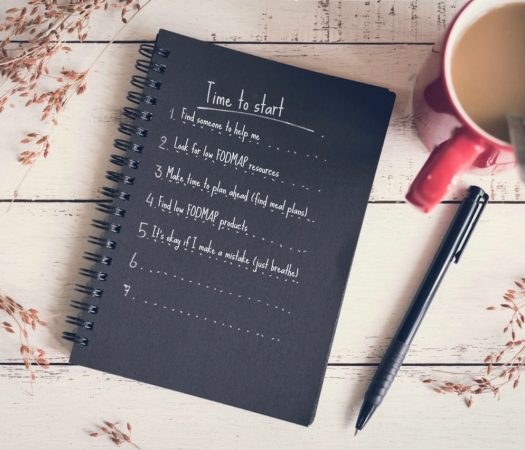 Time to start
1. Find someone to help me
2. Look for low FODMAP resources
3. Make time to plan ahead (find meal plans)
4. Find low FODMAP products
5. It's okay if I make a mistake (just breathe)
6
7